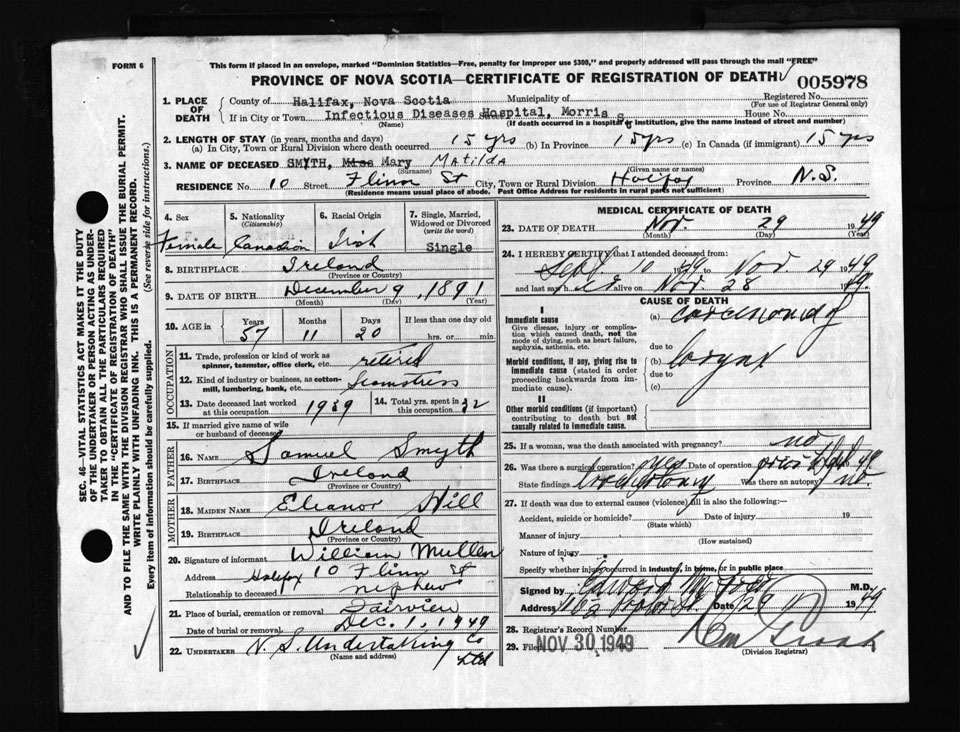 FORM 6
This form if placed in an envelope, marked "Dominion Statistics—Free, penalty for improper use $300," and properly addressed will pass through the mail "FREE"
PROVINCE OF NOVA SCOTIA—CERTIFICATE OF REGISTRATION OF DEATH
005978
1. PLACE OF DEATH
County of Halifax, Nova Scotia Municipality of Registered No.
(For use of Registrar General only)
If in City or Town Infectious Diseases Hospital, Morris S House No.
(Name) (If death occurred in a hospital or institution, give name instead of street and number)
2. LENGTH OF STAY (in years, months and days)
(a) In City, Town or Rural Division where death occurred 15 yrs (b) In Province 15 yrs (c) In Canada (if immigrant) 15 yrs
3. NAME OF DECEASED SMYTH, Miss Mary Matilda
(Surname) (Given name or names)
RESIDENCE No. 10 Street Flinn St City, Town or Rural Division Halifax Province N.S.
(Residence means usual place of abode. Post Office Address for residents in rural parts not sufficient)
4. Sex
Female
5. Nationality (Citizenship)
Canadian
6. Racial Origin
Irish
7. Single, Married, Widowed or Divorced (write the word)
Single
8. BIRTHPLACE Ireland
(Province or Country)
9. DATE OF BIRTH December 9, 1891
(Month) (Day) (Year)
10. AGE in Years Months Days If less than one day old
57 11 20 hrs. or min.
OCCUPATION
11. Trade, profession or kind of work as spinner, teamster, office clerk, etc. retired
12. Kind of industry or business, as cotton-mill, lumbering, bank, etc. Seamstress
13. Date deceased last worked at this occupation 1939
14. Total yrs. spent in this occupation 32
15. If married give name of wife or husband of deceased
FATHER
16. NAME Samuel Smyth
17. BIRTHPLACE Ireland
(Province or Country)
MOTHER
18. MAIDEN NAME Eleanor Hill
19. BIRTHPLACE Ireland
(Province or Country)
20. Signature of informant William Mullen
Address Halifax 10 Flinn St
Relationship to deceased nephew
21. Place of burial, cremation or removal Fairview
Date of burial or removal Dec. 1, 1949
22. UNDERTAKER N. S. Undertaking Co Ltd
(Name and address)
MEDICAL CERTIFICATE OF DEATH
23. DATE OF DEATH Nov. 29 1949
(Month) (Day) (Year)
24. I HEREBY CERTIFY that I attended deceased from:
Sept. 10 1949 to Nov 29 1949
and last saw her alive on Nov 28 1949.
CAUSE OF DEATH
I
Immediate cause
Give disease, injury or complication which caused death, not the mode of dying, such as heart failure, asphyxia, asthenia, etc.
(a) carcinoma of
due to
Morbid conditions, if any, giving rise to immediate cause (stated in order proceeding backwards from immediate cause).
(b) larynx
due to
(c)
II
Other morbid conditions (if important) contributing to death but not causally related to immediate cause.
25. If a woman, was the death associated with pregnancy? no
26. Was there a surgical operation? yes Date of operation 1949
State findings Was there an autopsy? no.
27. If death was due to external causes (violence) fill in also the following:
Accident, suicide or homicide? Date of injury 19
(State which)
Manner of injury
(How sustained)
Nature of injury
Specify whether injury occurred in industry, in home, or in public place
Signed by M.D.
Address Date 29 1949
28. Registrar's Record Number
29. Filed NOV 30 1949
(Division Registrar)
SEC. 46—VITAL STATISTICS ACT MAKES IT THE DUTY
OF THE UNDERTAKER OR PERSON ACTING AS UNDER-
TAKER TO OBTAIN ALL THE PARTICULARS REQUIRED
IN THE "CERTIFICATE OF REGISTRATION OF DEATH"
AND TO FILE THE SAME WITH THE DIVISION REGISTRAR WHO SHALL ISSUE THE BURIAL PERMIT.
WRITE PLAINLY WITH UNFADING INK. THIS IS A PERMANENT RECORD.
Every item of information should be carefully supplied. (See reverse side for instructions.)